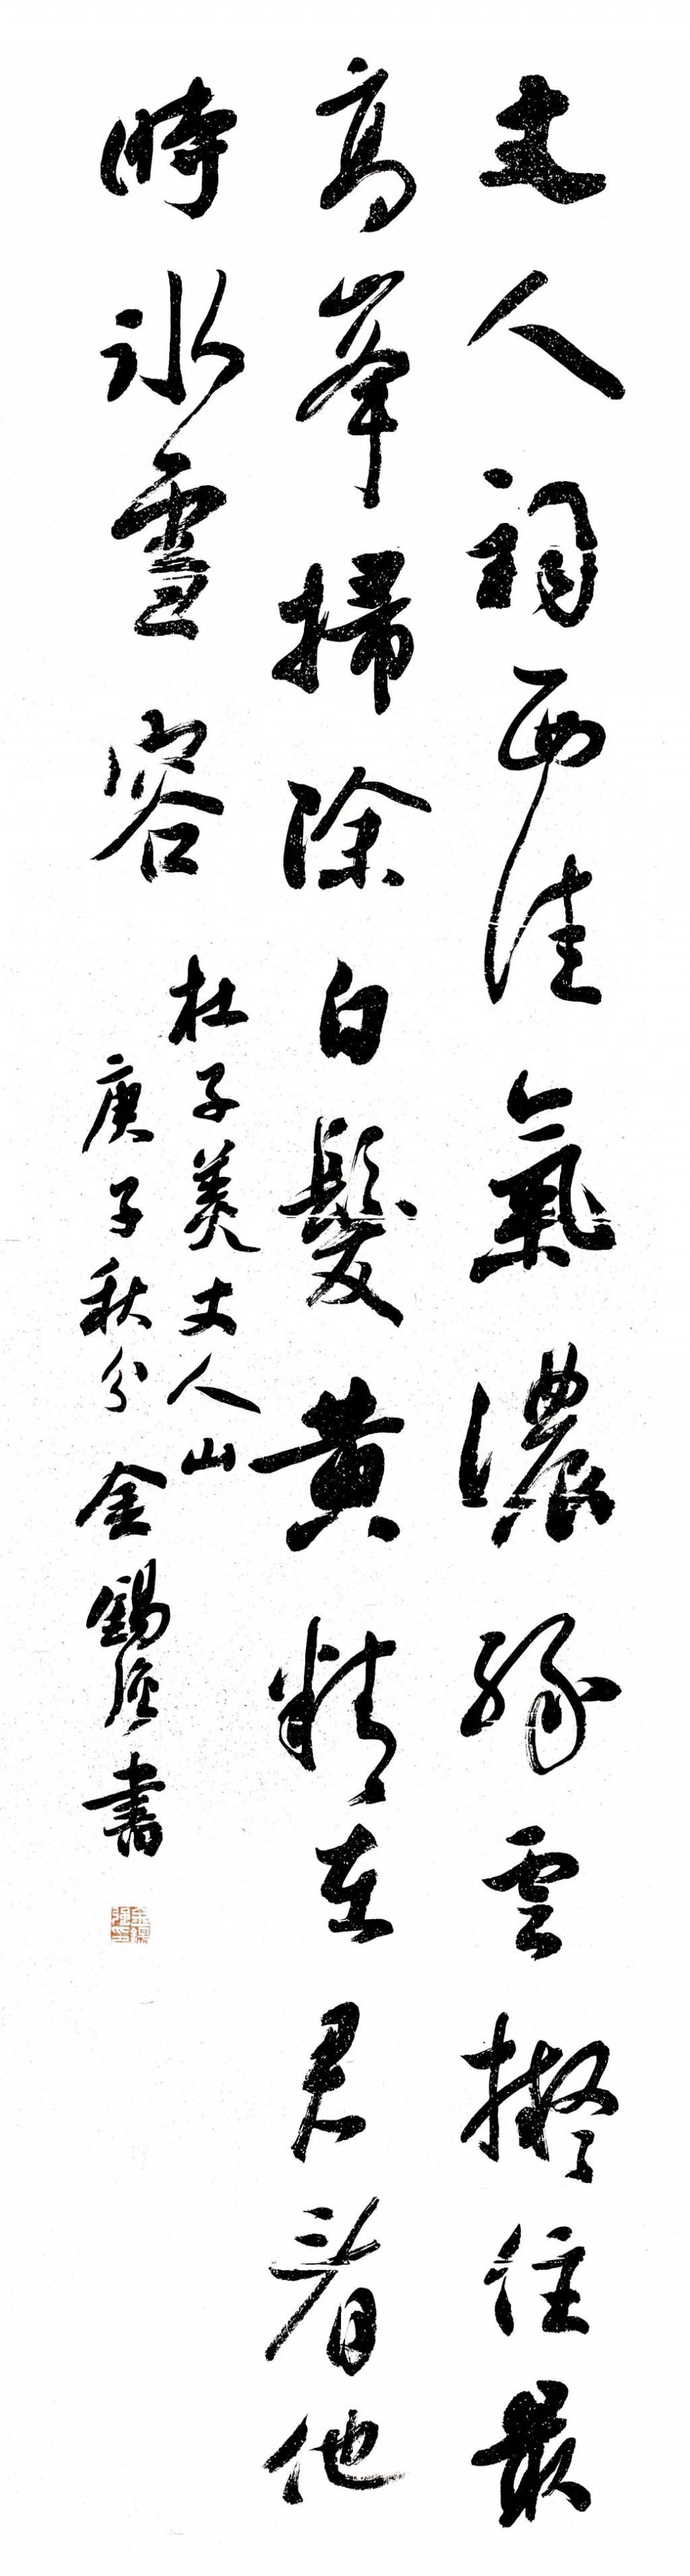 丈人祠西佳氣濃緣雲擬住最
高峯掃除白髮黃精在君看他
時冰雪容
杜子美丈人山
庚子秋分金錫強書